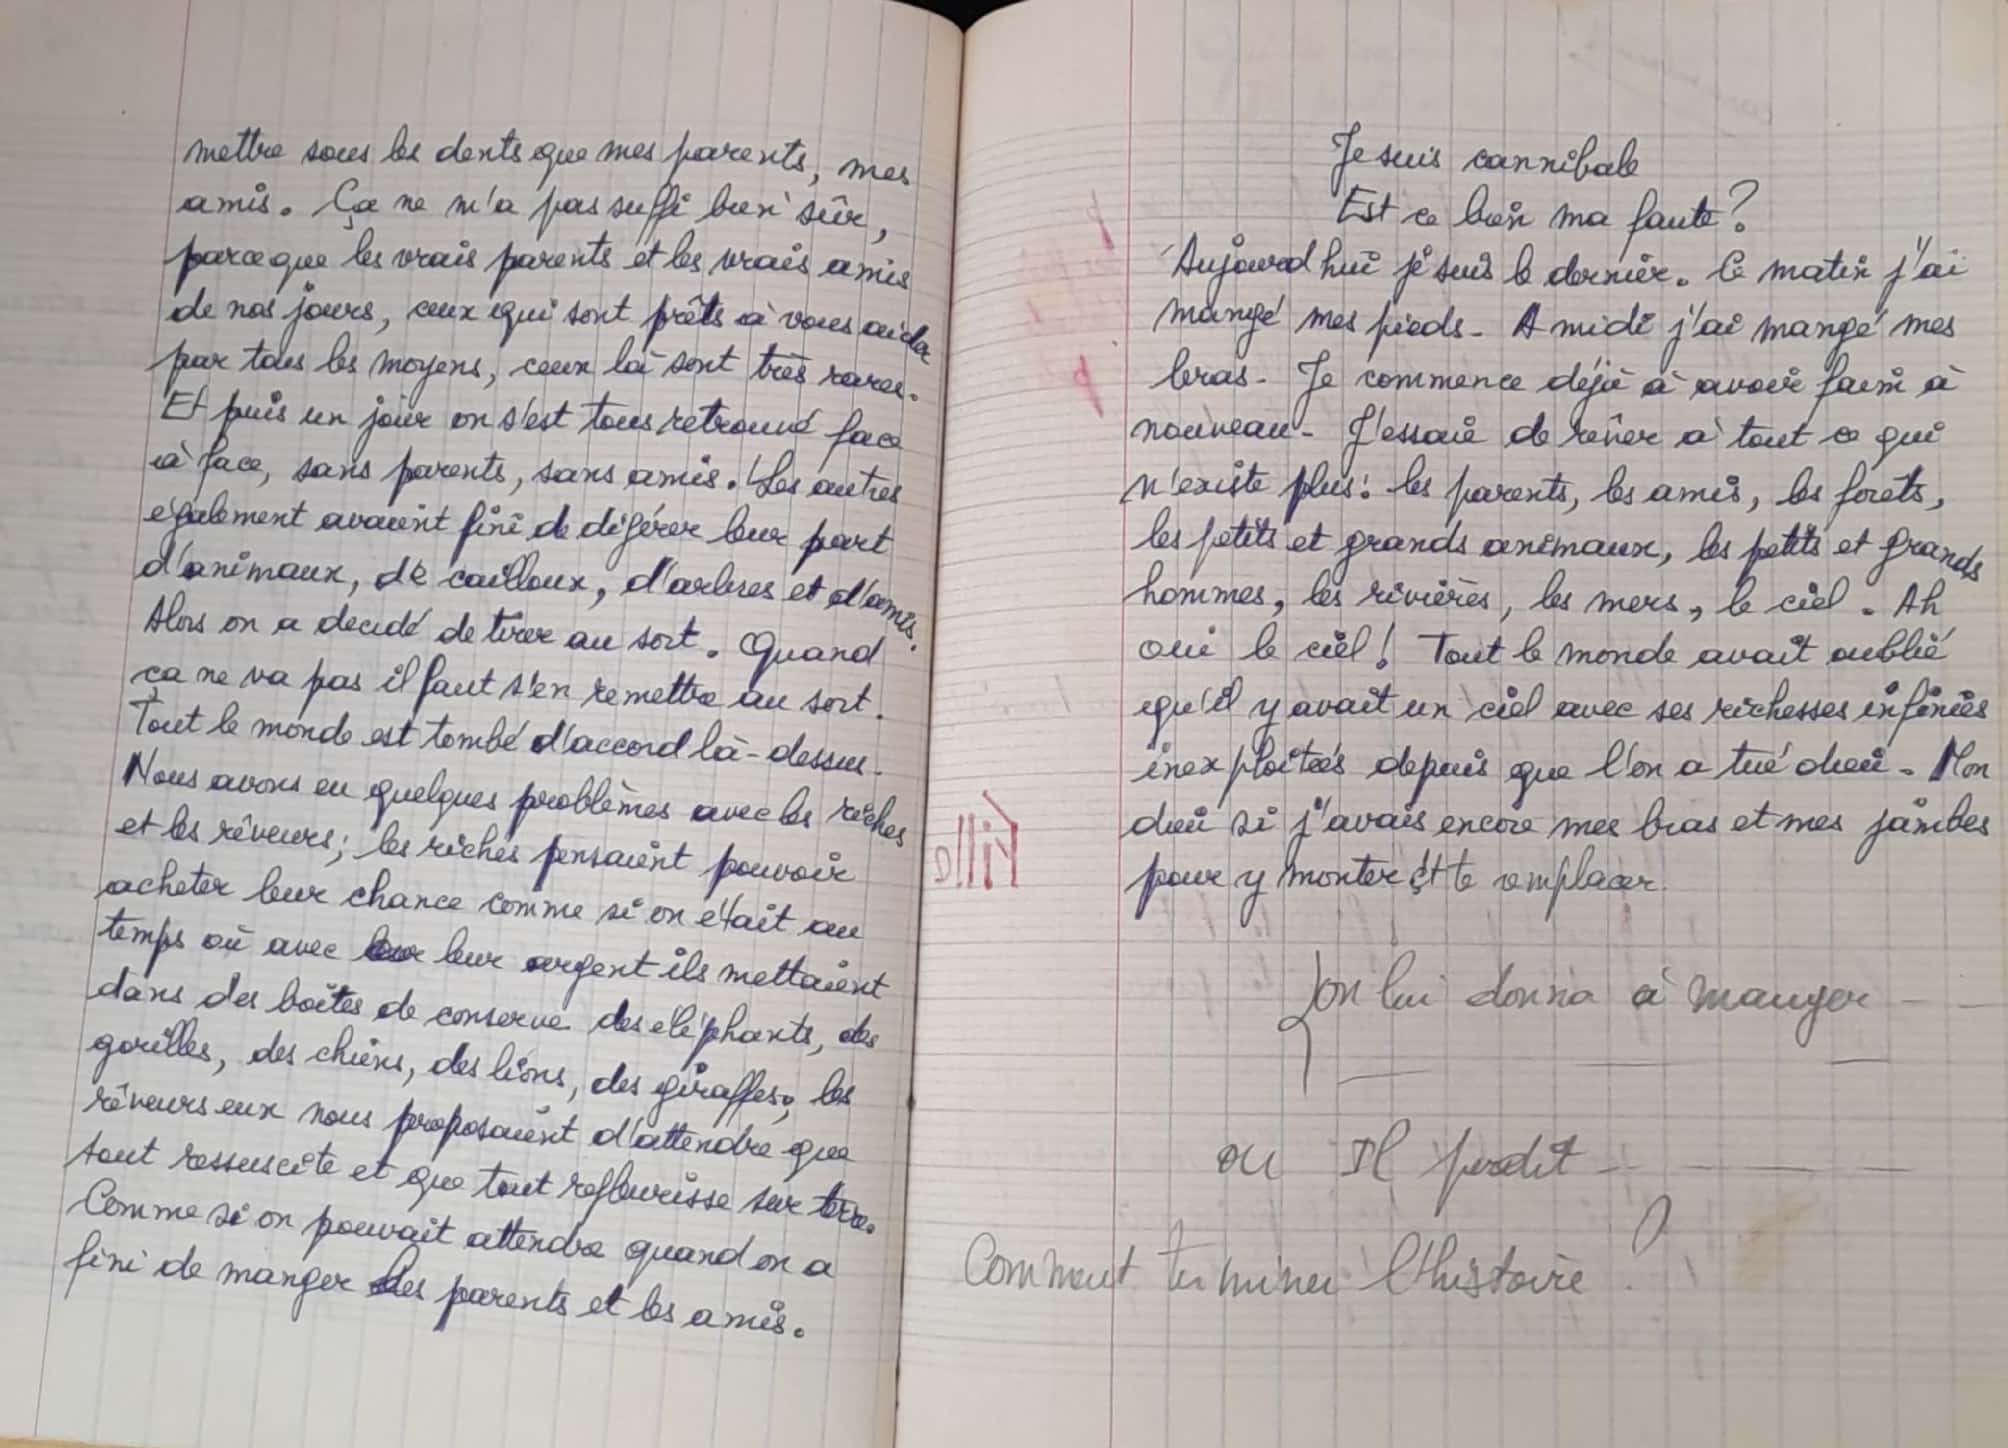 mettre sous les dents que mes parents, mes
amis. Ça ne m'a pas suffi bien sûr,
parce que les vrais parents et les vrais amis
de nos jours, ceux qui sont prêts à vous aider
par tous les moyens, ceux là sont très rares.
Et puis un jour on s'est tous retrouvé face
à face, sans parents, sans amis. Les autres
également avaient fini de digérer leur part
d'animaux, de cailloux, d'arbres et d'amis.
Alors on a decidé de tirer au sort. Quand
ça ne va pas il faut s'en remettre au sort.
Tout le monde est tombé d'accord là-dessus.
Nous avons eu quelques problèmes avec les riches
et les rêveurs; les riches pensaient pouvoir
acheter leur chance comme si on était au
temps où avec leur argent ils mettaient
dans des boîtes de conserve des éléphants, des
gorilles, des chiens, des lions, des giraffes; les
rêveurs eux nous proposaient d'attendre que
tout ressuscite et que tout refleurisse sur terre.
Comme si on pouvait attendre quand on a
fini de manger les parents et les amis.
Je suis cannibale
Est ce bien ma faute?
Aujourd'hui je suis le dernier. Ce matin j'ai
mangé mes pieds. A midi j'ai mangé mes
bras. Je commence déjà à avoir faim à
nouveau. J'essaie de rêver à tout ce qui
n'existe plus: les parents, les amis, les forêts,
les petits et grands animaux, les petits et grands
hommes, les rivières, les mers, le ciel. Ah
oui le ciel! Tout le monde avait oublié
qu'il y avait un ciel avec ses richesses infinies
inexploitées depuis que l'on a tué dieu. Mon
dieu si j'avais encore mes bras et mes jambes
pour y monter et te remplacer.
on lui donna à manger
ou Il perdit
Comment terminer l'histoire?